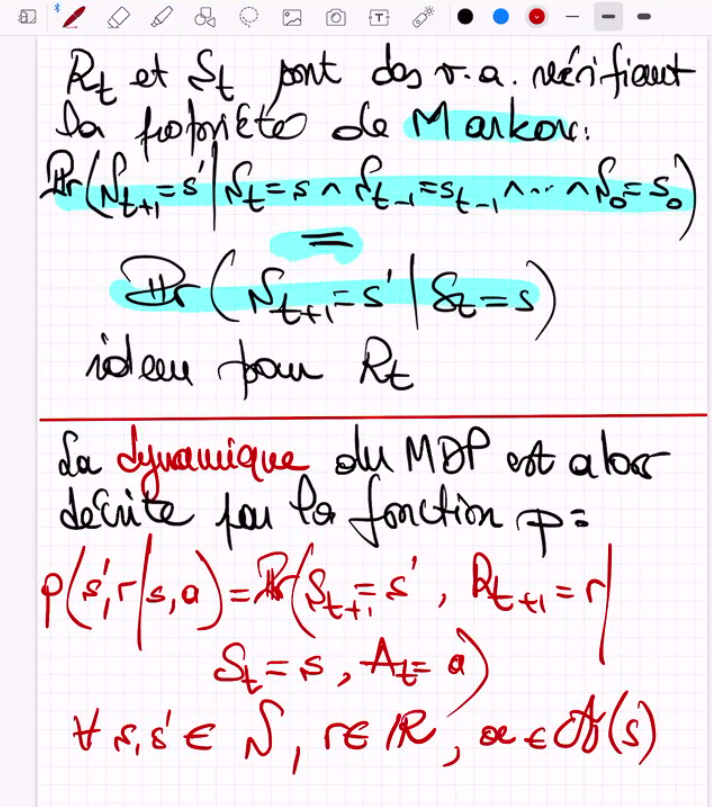 R_t et S_t sont des v.a. vérifiant
la propriété de Markov:
Pr(S_{t+1}=s' | S_t=s ∧ S_{t-1}=s_{t-1} ∧ ... ∧ S_0=s_0)
=
Pr(S_{t+1}=s' | S_t=s)
idem pour R_t
La dynamique du MDP est alors
décrite par la fonction p:
p(s',r|s,a) = Pr(S_{t+1}=s', R_{t+1}=r |
S_t=s, A_t=a)
∀ s,s' ∈ S, r ∈ R, a ∈ A(s)